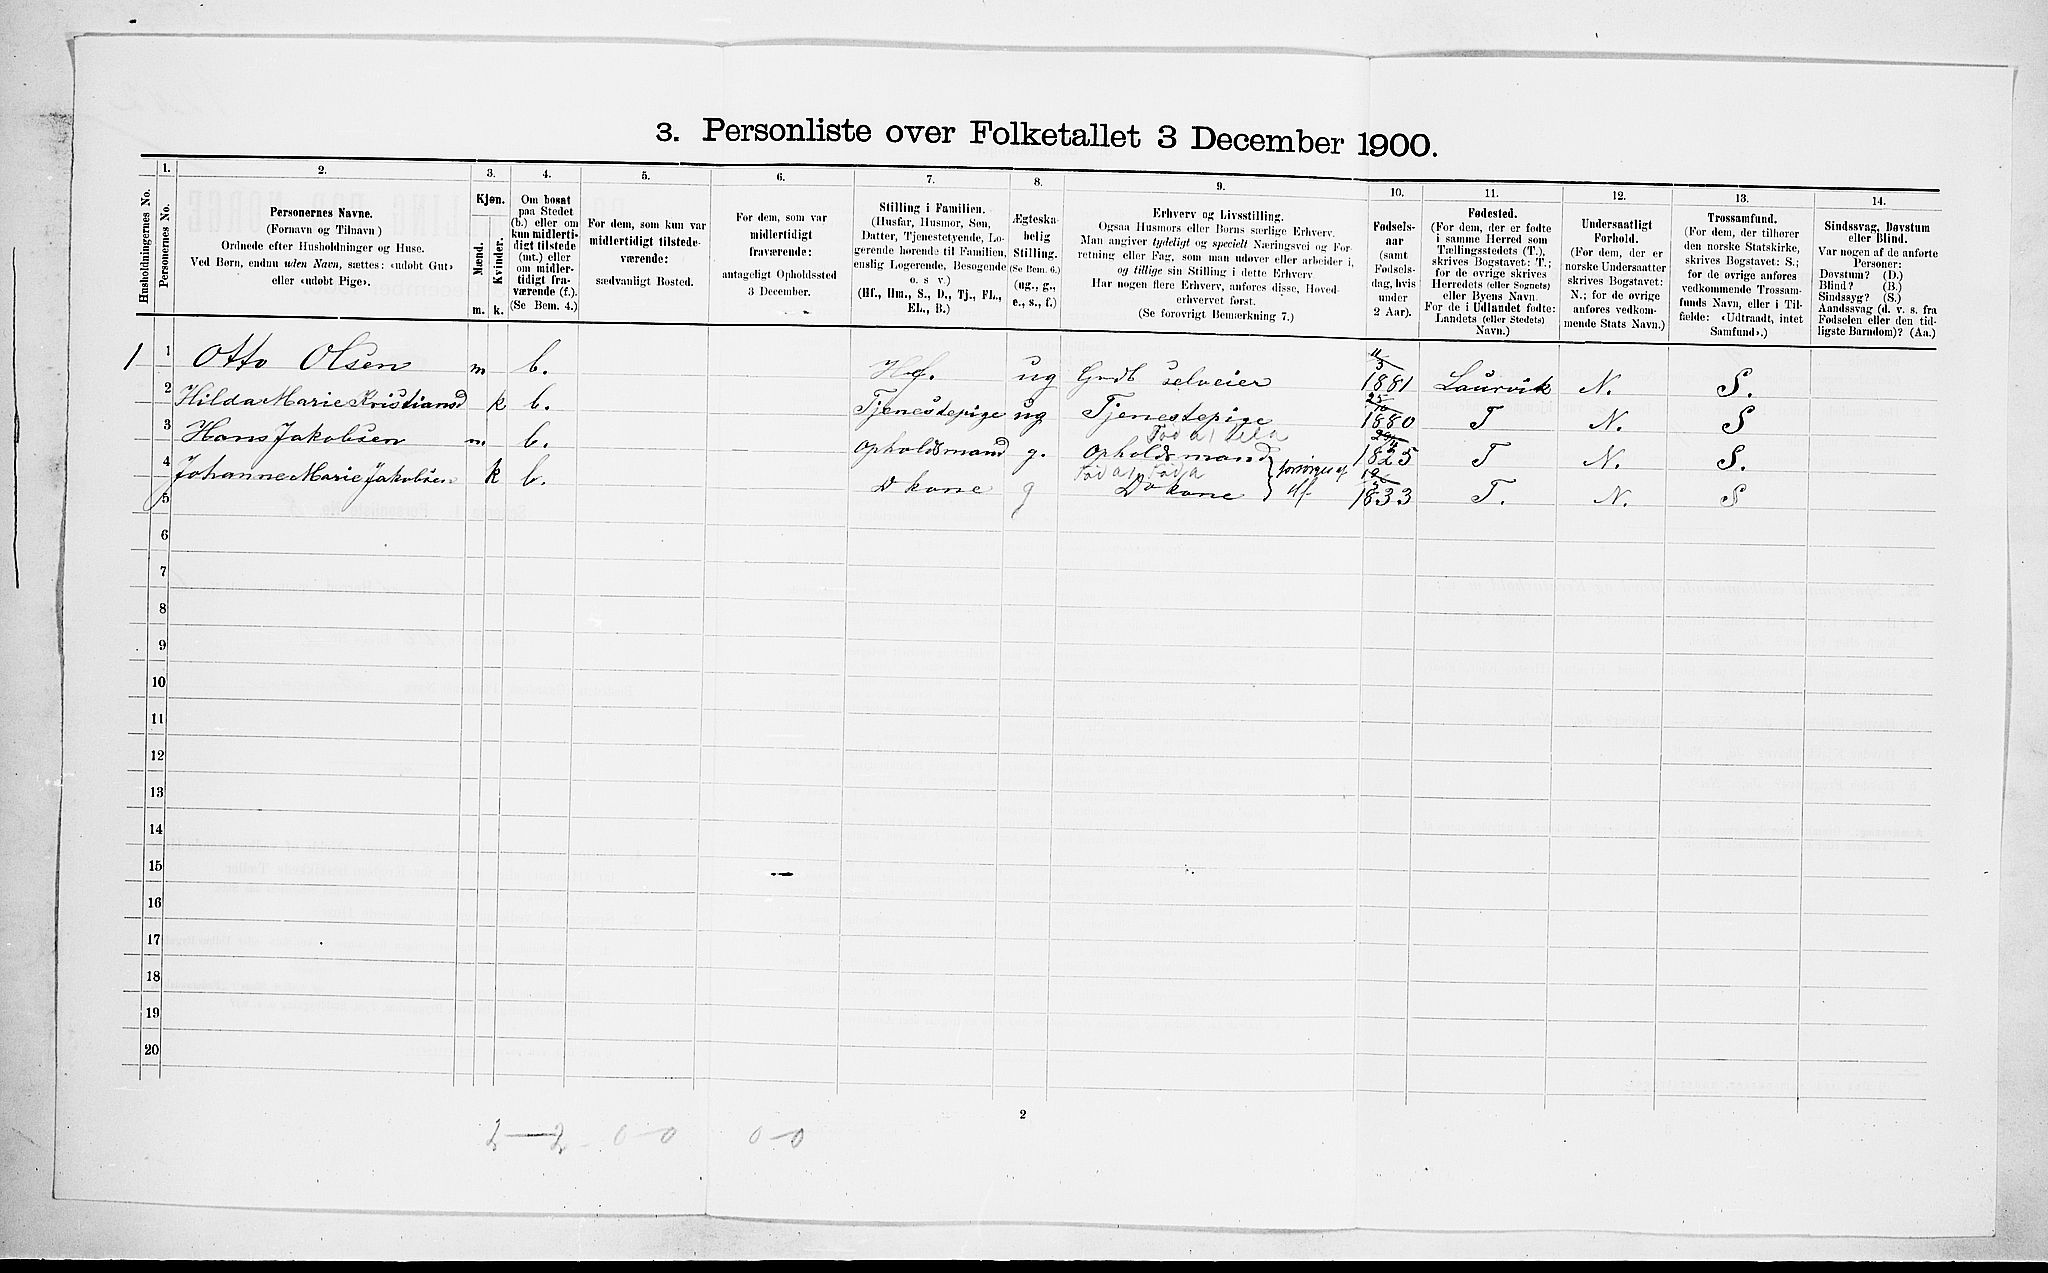 3. Personliste over Folketallet 3 December 1900.
Husholdningernes No.
1.
Personernes No.
2.
Personernes Navne.
(Fornavn og Tilnavn)
Ordnede efter Husholdninger og Huse.
Ved Børn, endnu uden Navn, sættes: «udøbt Gut»
eller «udøbt Pige».
3.
Kjøn.
Mænd.
Kvinder.
m. k.
4.
Om bosat
paa Stedet
(b.) eller om
kun midlerti-
digt tilstede
(mt.) eller
om midler-
tidigt fra-
værende (f.).
(Se Bem. 4.)
5.
For dem, som kun var
midlertidigt tilstede-
værende:
sædvanligt Bosted.
6.
For dem, som var
midlertidigt
fraværende:
antageligt Opholdssted
3 December.
7.
Stilling i Familien.
(Husfar, Husmor, Søn,
Datter, Tjenestetyende, Lo-
gerende hørende til Familien,
enslig Logerende, Besøgende
o. s v.)
(Hf., Hm., S., D., Tj., FL.,
EL., B.)
8.
Ægteska-
belig
Stilling.
(Se Bem. 6.)
(ug., g.,
e., s., f.)
9.
Erhverv og Livsstilling.
Ogsaa Husmors eller Børns særlige Erhverv.
Man angiver tydeligt og specielt Næringsvei og For-
retning eller Fag, som man udøver eller arbeider i,
og tillige sin Stilling i dette Erhverv.
Har nogen flere Erhverv, anføres disse, Hoved-
erhvervet først.
(Se forøvrigt Bemærkning 7.)
10.
Fødsels-
aar
(samt
Fødsels-
dag, hvis
under
2 Aar).
11.
Fødested.
(For dem, der er fødte
i samme Herred som
Tællingsstedets (T.),
skrives Bogstavet: T.;
for de øvrige skrives
Herredets (eller Sognets)
eller Byens Navn.
For de i Udlandet fødte:
Landets (eller Stedets)
Navn.)
12.
Undersaatligt
Forhold.
(For dem, der er
norske Undersaatter
skrives Bogstavet:
N.; for de øvrige
anføres vedkom-
mende Stats Navn.)
13.
Trossamfund.
(For dem, der tilhører
den norske Statskirke,
skrives Bogstavet: S.;
for de øvrige anføres
vedkommende Trossam-
funds Navn, eller i Til-
fælde: «Udtraadt, intet
Samfund».)
14.
Sindssvag, Døvstum
eller Blind.
Var nogen af de anførte
Personer:
Døvstum? (D.)
Blind? (B.)
Sindssyg? (S.)
Aandssvag (d. v. s. fra
Fødselen eller den tid-
ligste Barndom)? (Aa.)
1 1 Otto Olsen m b. Hf. ug Grdb selveier 11/5 1881 Laurvik N. S.
2 Hilda Marie Kristiansd k b. Tjenestepige ug Tjenestepige 25/10 1880 T N. S
3 Hans Jakobsen m b. Opholdsmand g. Opholdsmand 1825 T N. S.
4 Johanne Marie Jakobsen k b. Do kone g Do kone forsørges af Hf. 1833 T. N. S
5
6
7
8
9
10
11
12
13
14
15
16
17
18
19
20
2
2 — 2 0-0 0-0